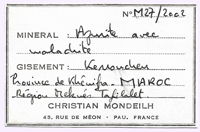 N° M27/2002
MINERAL : Azurite avec
malachite
GISEMENT : Kerrouchen
Province de Khénifra - MAROC
Région Meknès Tafilalet
CHRISTIAN MONDEILH
45, RUE DE MÉON - PAU. FRANCE